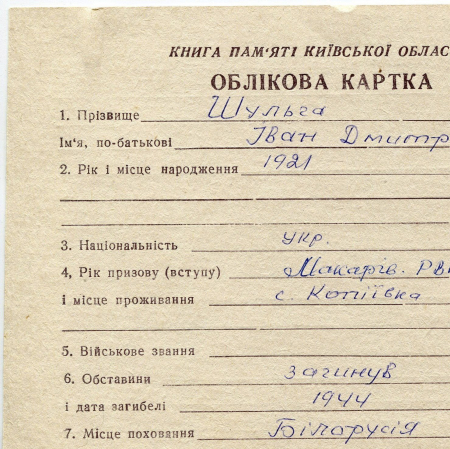 КНИГА ПАМ'ЯТІ КИЇВСЬКОЇ ОБЛАС
ОБЛІКОВА КАРТКА
1. Прізвище Шульга
Ім'я, по-батькові Іван Дмитр
2. Рік і місце народження 1921
3. Національність укр.
4, Рік призову (вступу) Макарів. РВ
і місце проживання с. Копіївка
5. Військове звання
6. Обставини загинув
і дата загибелі 1944
7. Місце поховання Білорусія